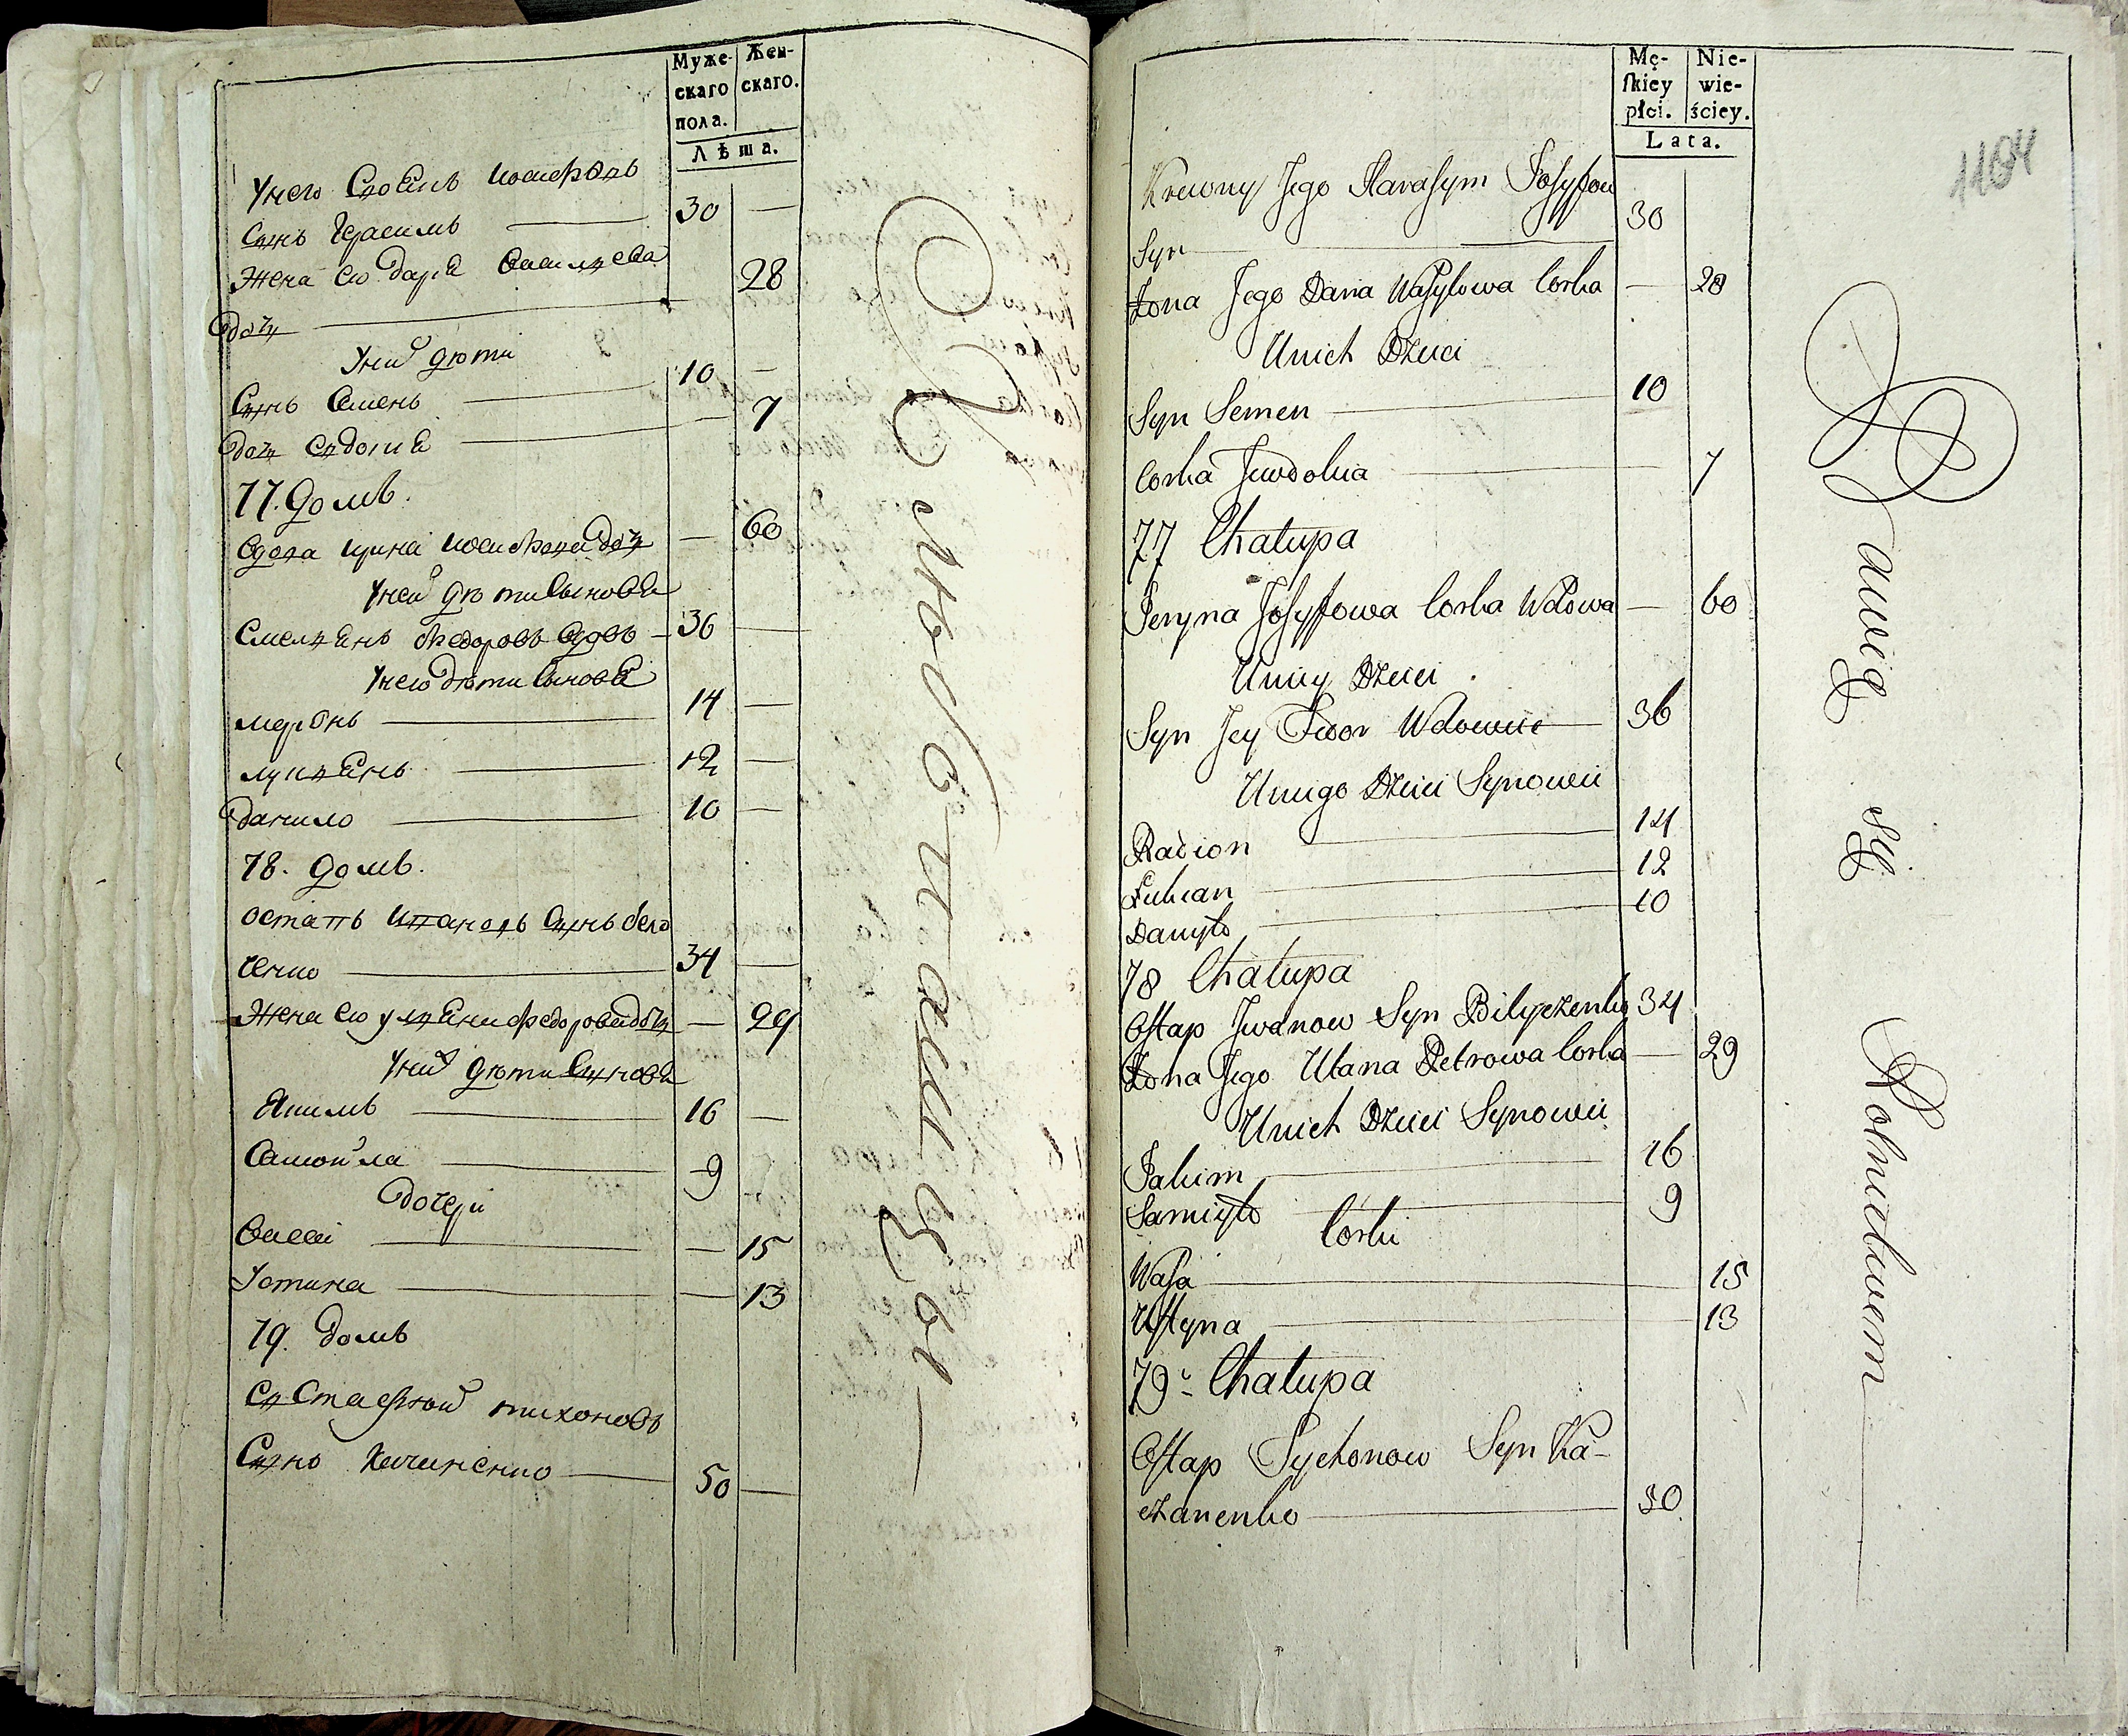 Муже-
скаго
пола.
Жен-
скаго.
Лѣта.
У него
Сынъ Герасимъ 30 —
Жена его Дарія Василиева 28
дочь
У них дѣти
Сынъ Семенъ 10 —
дочь Евдокія 7
77. домъ.
Вдова Ирина дочь — 60
У ней дѣти Сыновя
Федоровъ Вдовъ — 36 —
У него дѣти Сыновя
14 —
Лукіянъ 12 —
Данило 10 —
78. домъ.
Остапъ Ивановъ Сынъ Бели
ченко 34 —
Жена его Уліяна Федорова дочь — 29
У них дѣти Синовя
Якимъ 16 —
Самойла 9
Дочери
Васса — 15
Устина — 13
79. домъ
Евстафий Тихоновъ
Сынъ Каченко 50 —
Mę-
ſkiey
płci.
Nie-
wie-
ściey.
Lata.
1164
Krewny Jego Harasym Josyfow
Syn 30
Żona Jego Daria Wasylowa Corka — 28
Unich Dzieci
Syn Semen 10
Corka Jewdokia 7
77 Chałupa
Jeryna Josyffowa Corka Wdowa — 60
Uniey Dzieci
Syn Jey Fedor Wdowiec 36
Uniego Dzieci Synowei
Radion 14
Łukian 12
Danyło 10
78 Chałupa
Ostap Jwanow Syn Bilyczenko 34
Żona Jego Ulana Petrowa Corka — 29
Unich Dzieci Synowei
Jakim 16
Samiyło 9
Corki
Wasa 15
Ustyna 13
79. Chałupa
Ostap Tychonow Syn Ka-
czanenko 50
bawią się Rolnictwem